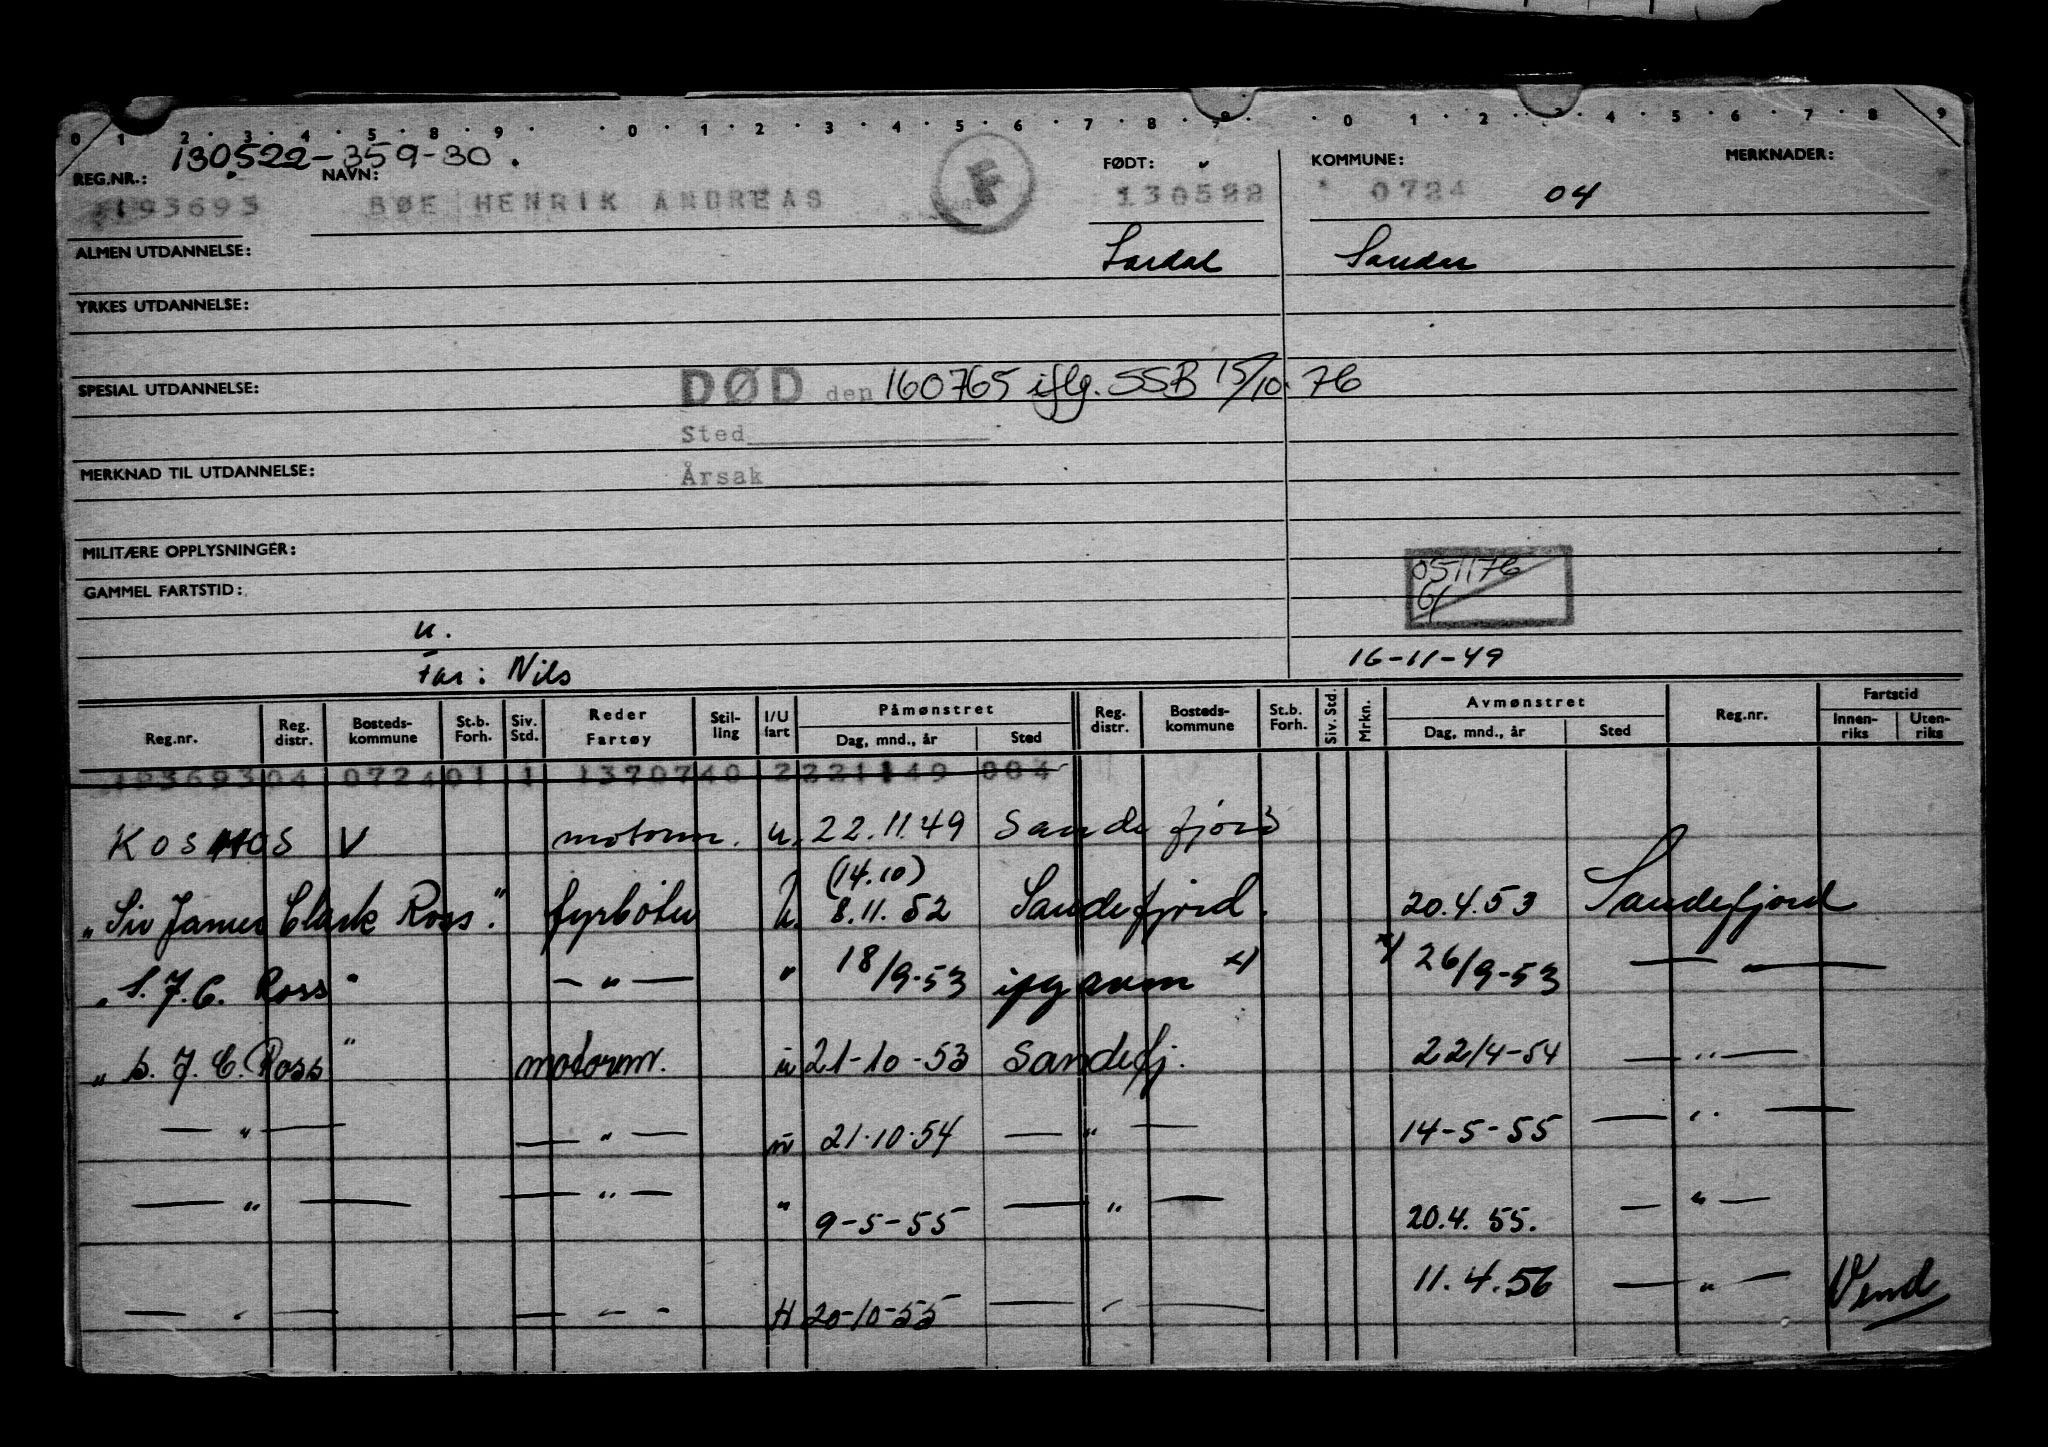 0 1 2 3 4 5 8 9 0 1 2 3 4 5 6 7 8 9 0 1 2 3 4 5 6 7 8 9
130522-359-30.
REG.NR.: NAVN: FØDT: KOMMUNE: MERKNADER:
193693 BØE HENRIK ANDREAS F 130522 0724 04
ALMEN UTDANNELSE: Lardal Sandar
YRKES UTDANNELSE:
SPESIAL UTDANNELSE: DØD den 160765 iflg. SSB 15/10.76
Sted
MERKNAD TIL UTDANNELSE: Årsak
MILITÆRE OPPLYSNINGER:
051176
GAMMEL FARTSTID:
u.
Far: Nils 16-11-49
Reg.nr. Reg. distr. Bosteds-kommune St.b. Forh. Siv. Std. Reder Fartøy Stil-ling I/U fart Påmønstret Dag, mnd., år Sted Reg. distr. Bosteds-kommune St.b. Forh. Siv. Std. Mrkn. Avmønstret Dag, mnd., år Sted Reg.nr. Fartstid Innen-riks Uten-riks
193693 04 0724 01 1 1370740 2 221149 004
KOSMOS V motorm. u. 22.11.49 Sandefjord
(14.10)
"Sir James Clark Ross." fyrbøter u. 8.11.52 Sandefjord. 20.4.53 Sandefjord
"S.J.C. Ross" — " — " 18/9-53 ifg avm x) x) 26/9-53 — —
"S.J.C. Ross" motorm. u 21-10-53 Sandefj. 22/4-54 — " —
— " — — " — u 21.10.54 — " — 14-5-55 — " —
— " — — " — " 9-5-55 — " — 20.4.55. — " —
11.4.56 — " — Vend
— " — — - - 20-10-55 — " —